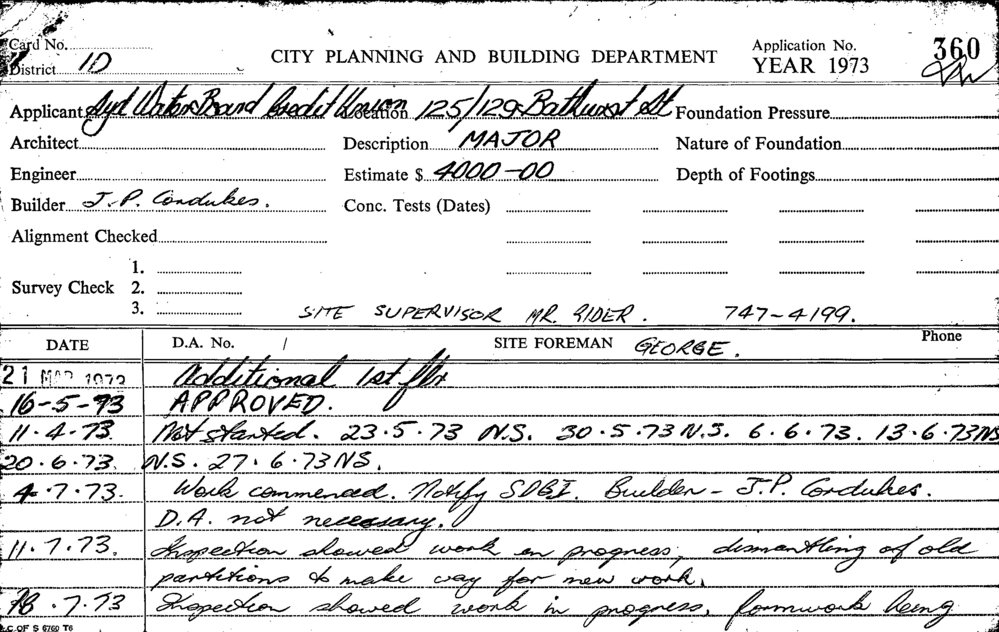 Card No.
District 10
CITY PLANNING AND BUILDING DEPARTMENT
Application No.
YEAR 1973
360
Applicant Syd Water Board Credit Union Location 125/129 Bathurst St Foundation Pressure
Architect Description MAJOR Nature of Foundation
Engineer Estimate $ 4000-00 Depth of Footings
Builder J.P. Cordukes. Conc. Tests (Dates)
Alignment Checked
1.
Survey Check 2.
3.
SITE SUPERVISOR MR. RIDER. 747-4199.
DATE D.A. No. / SITE FOREMAN GEORGE. Phone
21 MAR 1973 Additional 1st flr
16-5-73 APPROVED.
11.4.73. Not started. 23.5.73 N.S. 30.5.73 N.S. 6.6.73. 13.6.73 NS
20.6.73. N.S. 27.6.73 NS.
4.7.73. Work commenced. Notify SDBI. Builder - J.P. Cordukes.
D.A. not necessary.
11.7.73. Inspection showed work in progress, dismantling of old
partitions to make way for new work.
18.7.73 Inspection showed work in progress, formwork being
C. OF S 6760 T6